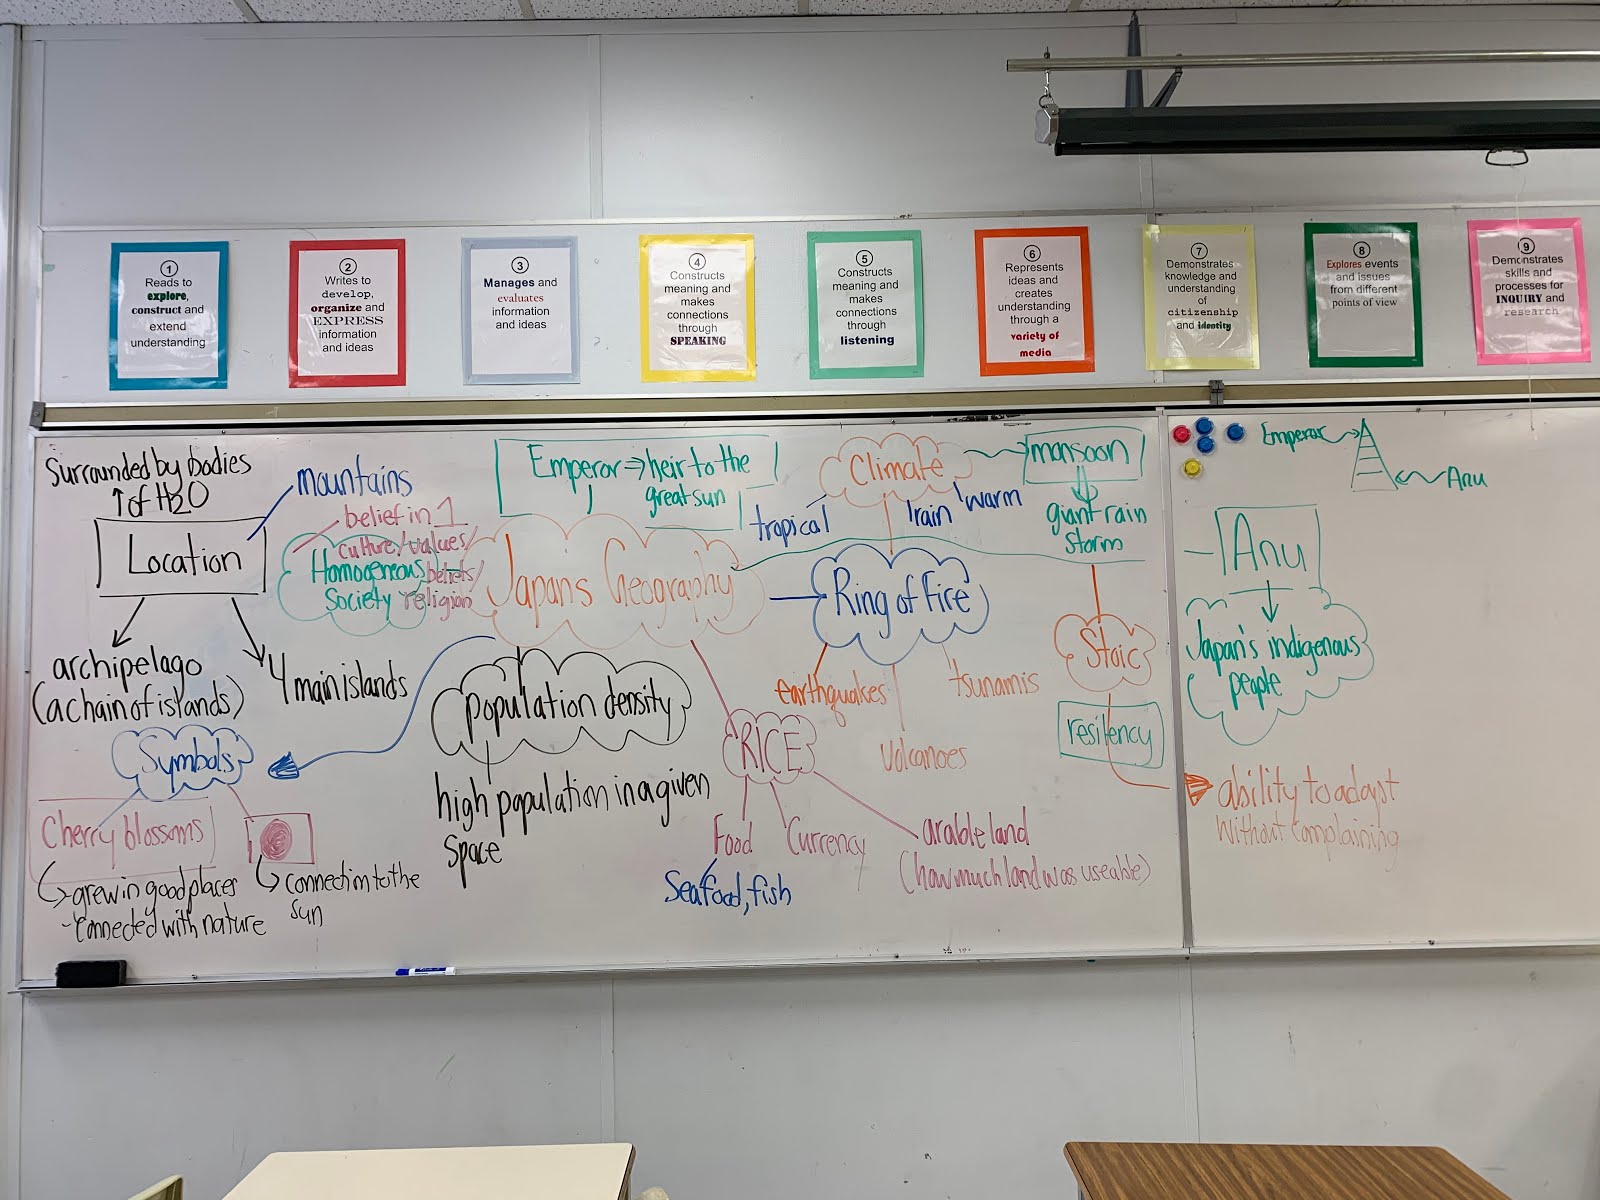 1
Reads to
explore,
construct and
extend
understanding
2
Writes to
develop,
organize and
EXPRESS
information
and ideas
3
Manages and
evaluates
information
and ideas
4
Constructs
meaning and
makes
connections
through
SPEAKING
5
Constructs
meaning and
makes
connections
through
listening
6
Represents
ideas and
creates
understanding
through a
variety of
media
7
Demonstrates
knowledge and
understanding
of
citizenship
and identity
8
Explores events
and issues
from different
points of view
9
Demonstrates
skills and
processes for
INQUIRY and
research
Surrounded by bodies
of H2O
Location
mountains
archipelago
(a chain of islands)
4 main islands
belief in 1
culture/values/
beliefs/
religion
Homogeneous
Society
Emperor → heir to the
great sun
Japan's Geography
Climate
tropical
rain
warm
monsoon
giant rain
storm
Ring of Fire
earthquakes
volcanoes
tsunamis
Stoic
resiliency
ability to adapt
without complaining
Symbols
Cherry blossoms
grew in good places
- connected with nature
connection to the
sun
population density
high population in a given
space
RICE
Food
Seafood, fish
Currency
arable land
(how much land was useable)
Emperor
Anu
Anu
Japan's indigenous
people